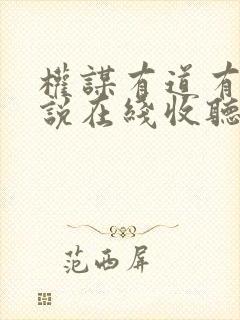 權謀有道有
說在綫收聽
范西屏